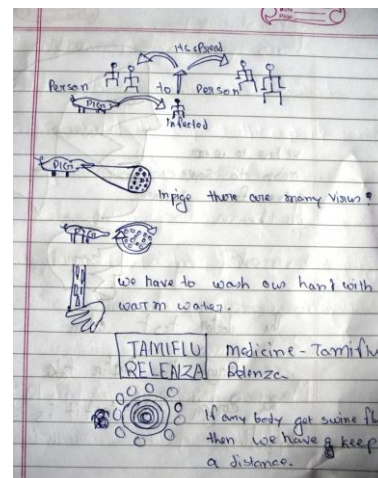 Date
Page
He spread
Person to Person
PIG
Infected
PIG
In pigs there are many virus.
PIG
we have to wash our hand with
warm water.
TAMIFLU
RELENZA
medicine - Tamiflu
Relenza
If any body get swine flu
then we have keep
a distance.